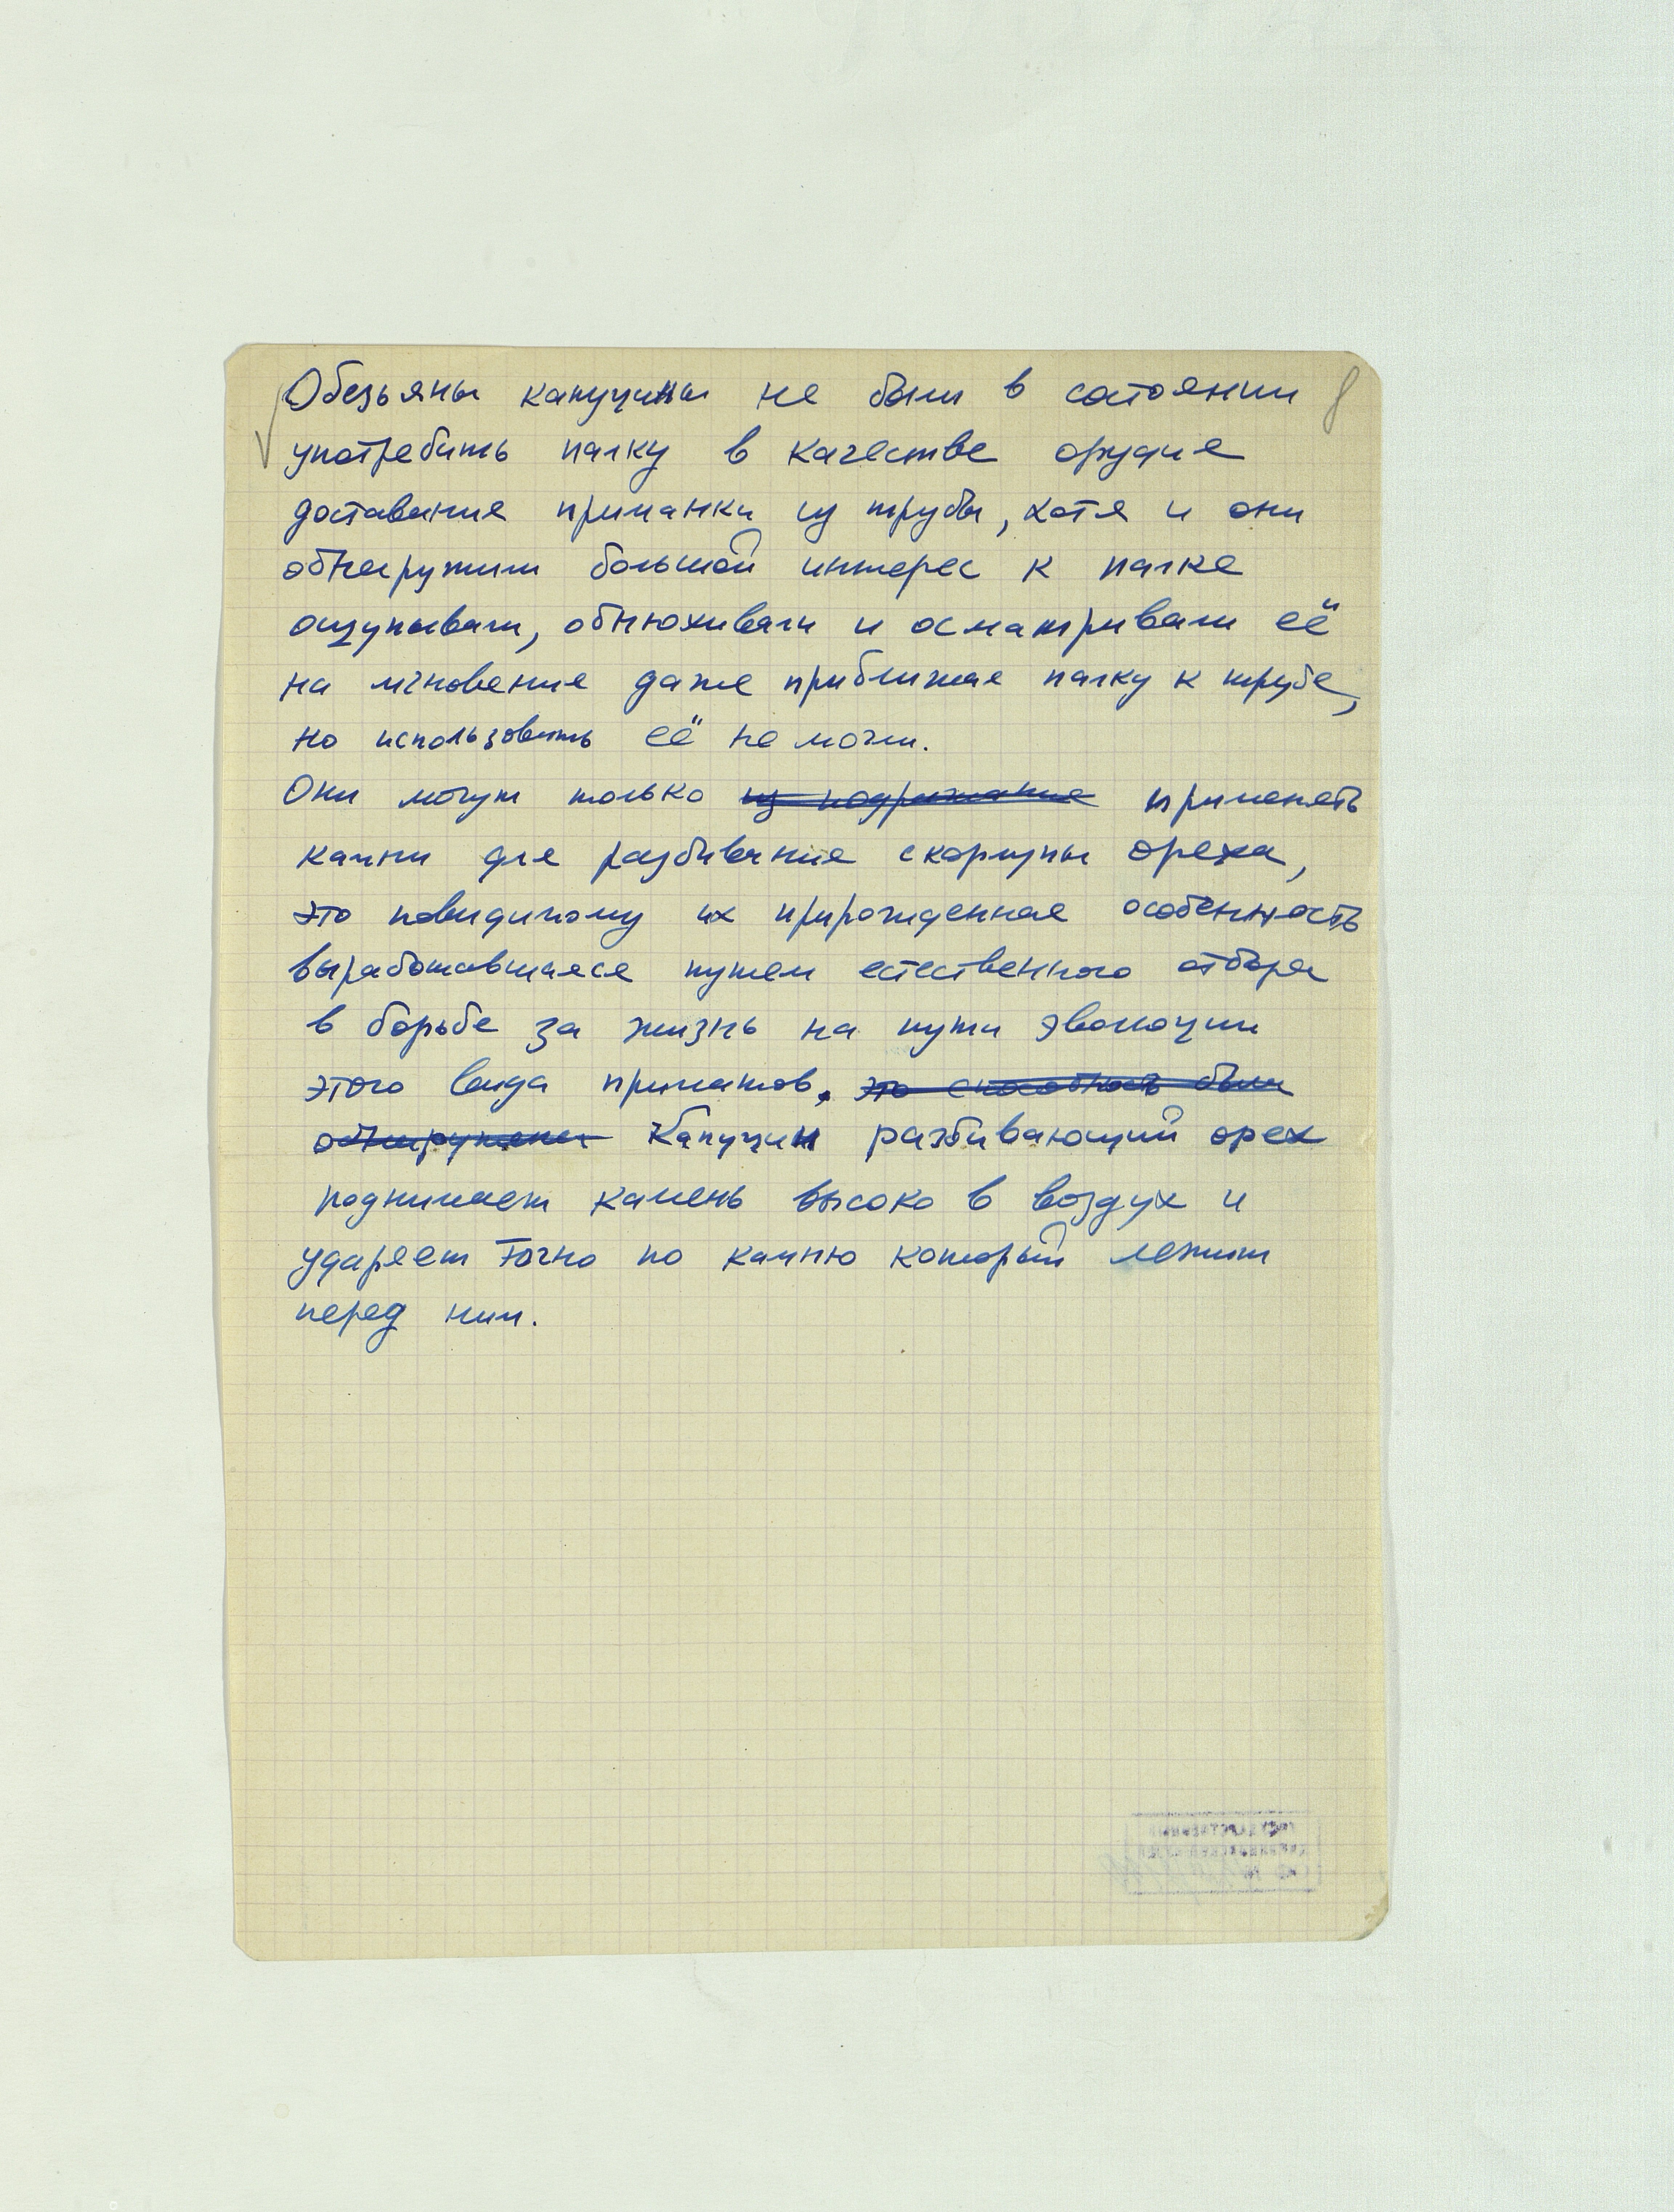 Обезьяны капуцины не были в состоянии 8
употребить палку в качестве орудия
доставания приманки из трубы, хотя и они
обнаружили большой интерес к палке
ощупывали, обнюхивали и осматривали её
на мгновение даже приближая палку к трубе,
но использовать её не могли.
Они могут только из подражания применять
камни для разбивания скорлупы ореха,
это повидимому их прирожденная особенность
выработавшаяся путем естественного отбора
в борьбе за жизнь на пути эволюции
этого вида приматов. это способность была
обнаружена Капуцин разбивающий орех
поднимает камень высоко в воздух и
ударяет точно по камню который лежит
перед ним.